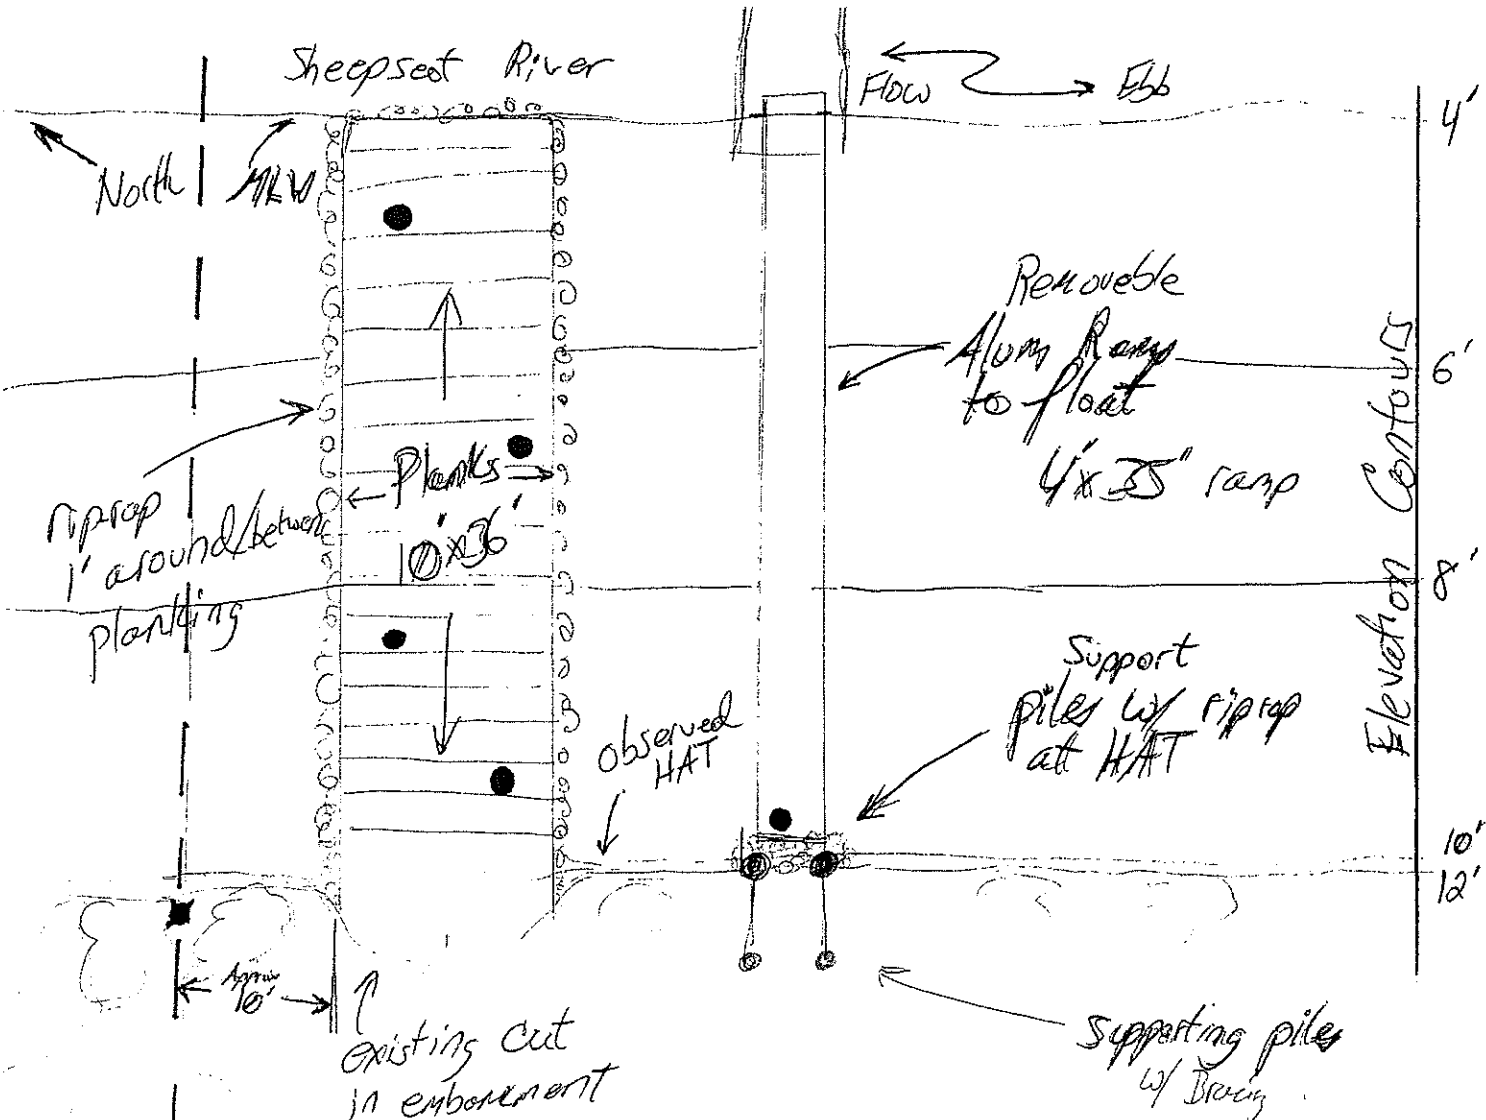 Sheepscot River
Flow
Ebb
4'
North
MLW
Removeble
Alum Ramp
to float
4'x35' ramp
6'
riprap
1' around/between
planking
Planks
10'x36'
Elevation Contours
8'
Support
piles w/ riprap
at HAT
observed
HAT
10'
12'
Approx
10'
existing cut
in embankment
Supporting piles
w/ Bracing